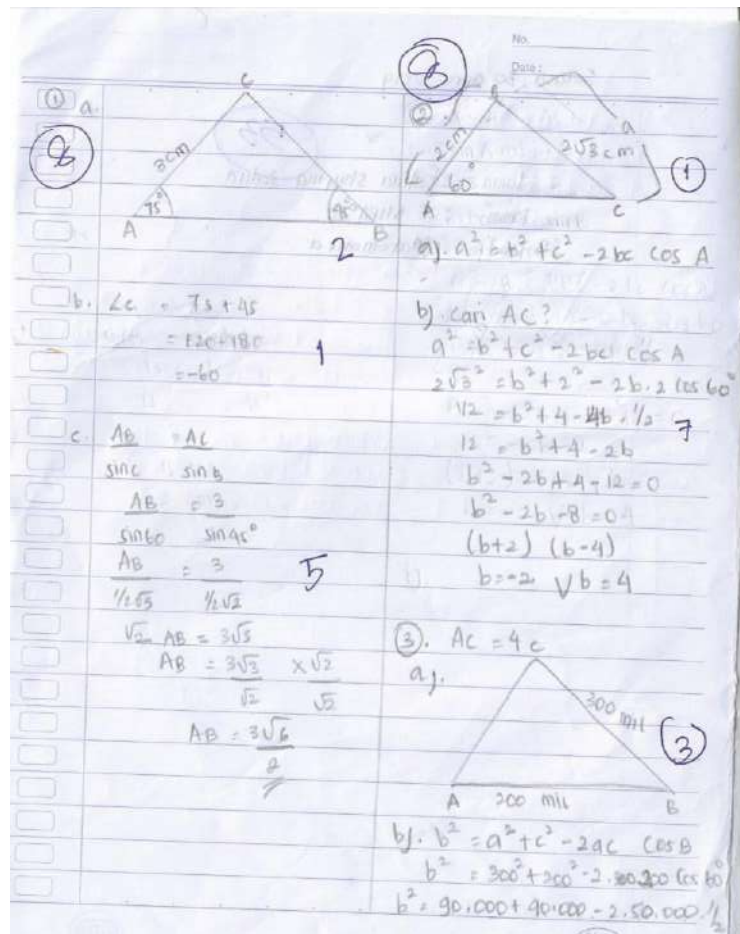 No.
Date:
① a.
8
C
3cm
?
75°
45°
A
B
2
b. ∠c = 75 + 45
= 120 - 180
= -60
1
c. AB = AC
sin c sin B
AB = 3
sin 60 sin 45°
AB = 3
1/2√3 1/2√2
5
√2 AB = 3√3
AB = 3√3 × √2
√2 √2
AB = 3√6
2
8
②
2cm
2√3 cm
a
60°
A
C
1
a). a² = b² + c² - 2bc cos A
b). cari AC?
a² = b² + c² - 2bc cos A
2√3² = b² + 2² - 2b.2 cos 60°
12 = b² + 4 - 4b . 1/2
7
12 = b² + 4 - 2b
b² - 2b + 4 - 12 = 0
b² - 2b - 8 = 0
(b+2) (b-4)
b = -2 V b = 4
③. AC = 4
a).
C
300 mil
3
A 200 mil B
b). b² = a² + c² - 2ac cos B
b² = 300² + 200² - 2.300.200 cos 60°
b² = 90.000 + 40.000 - 2.50.000.1/2